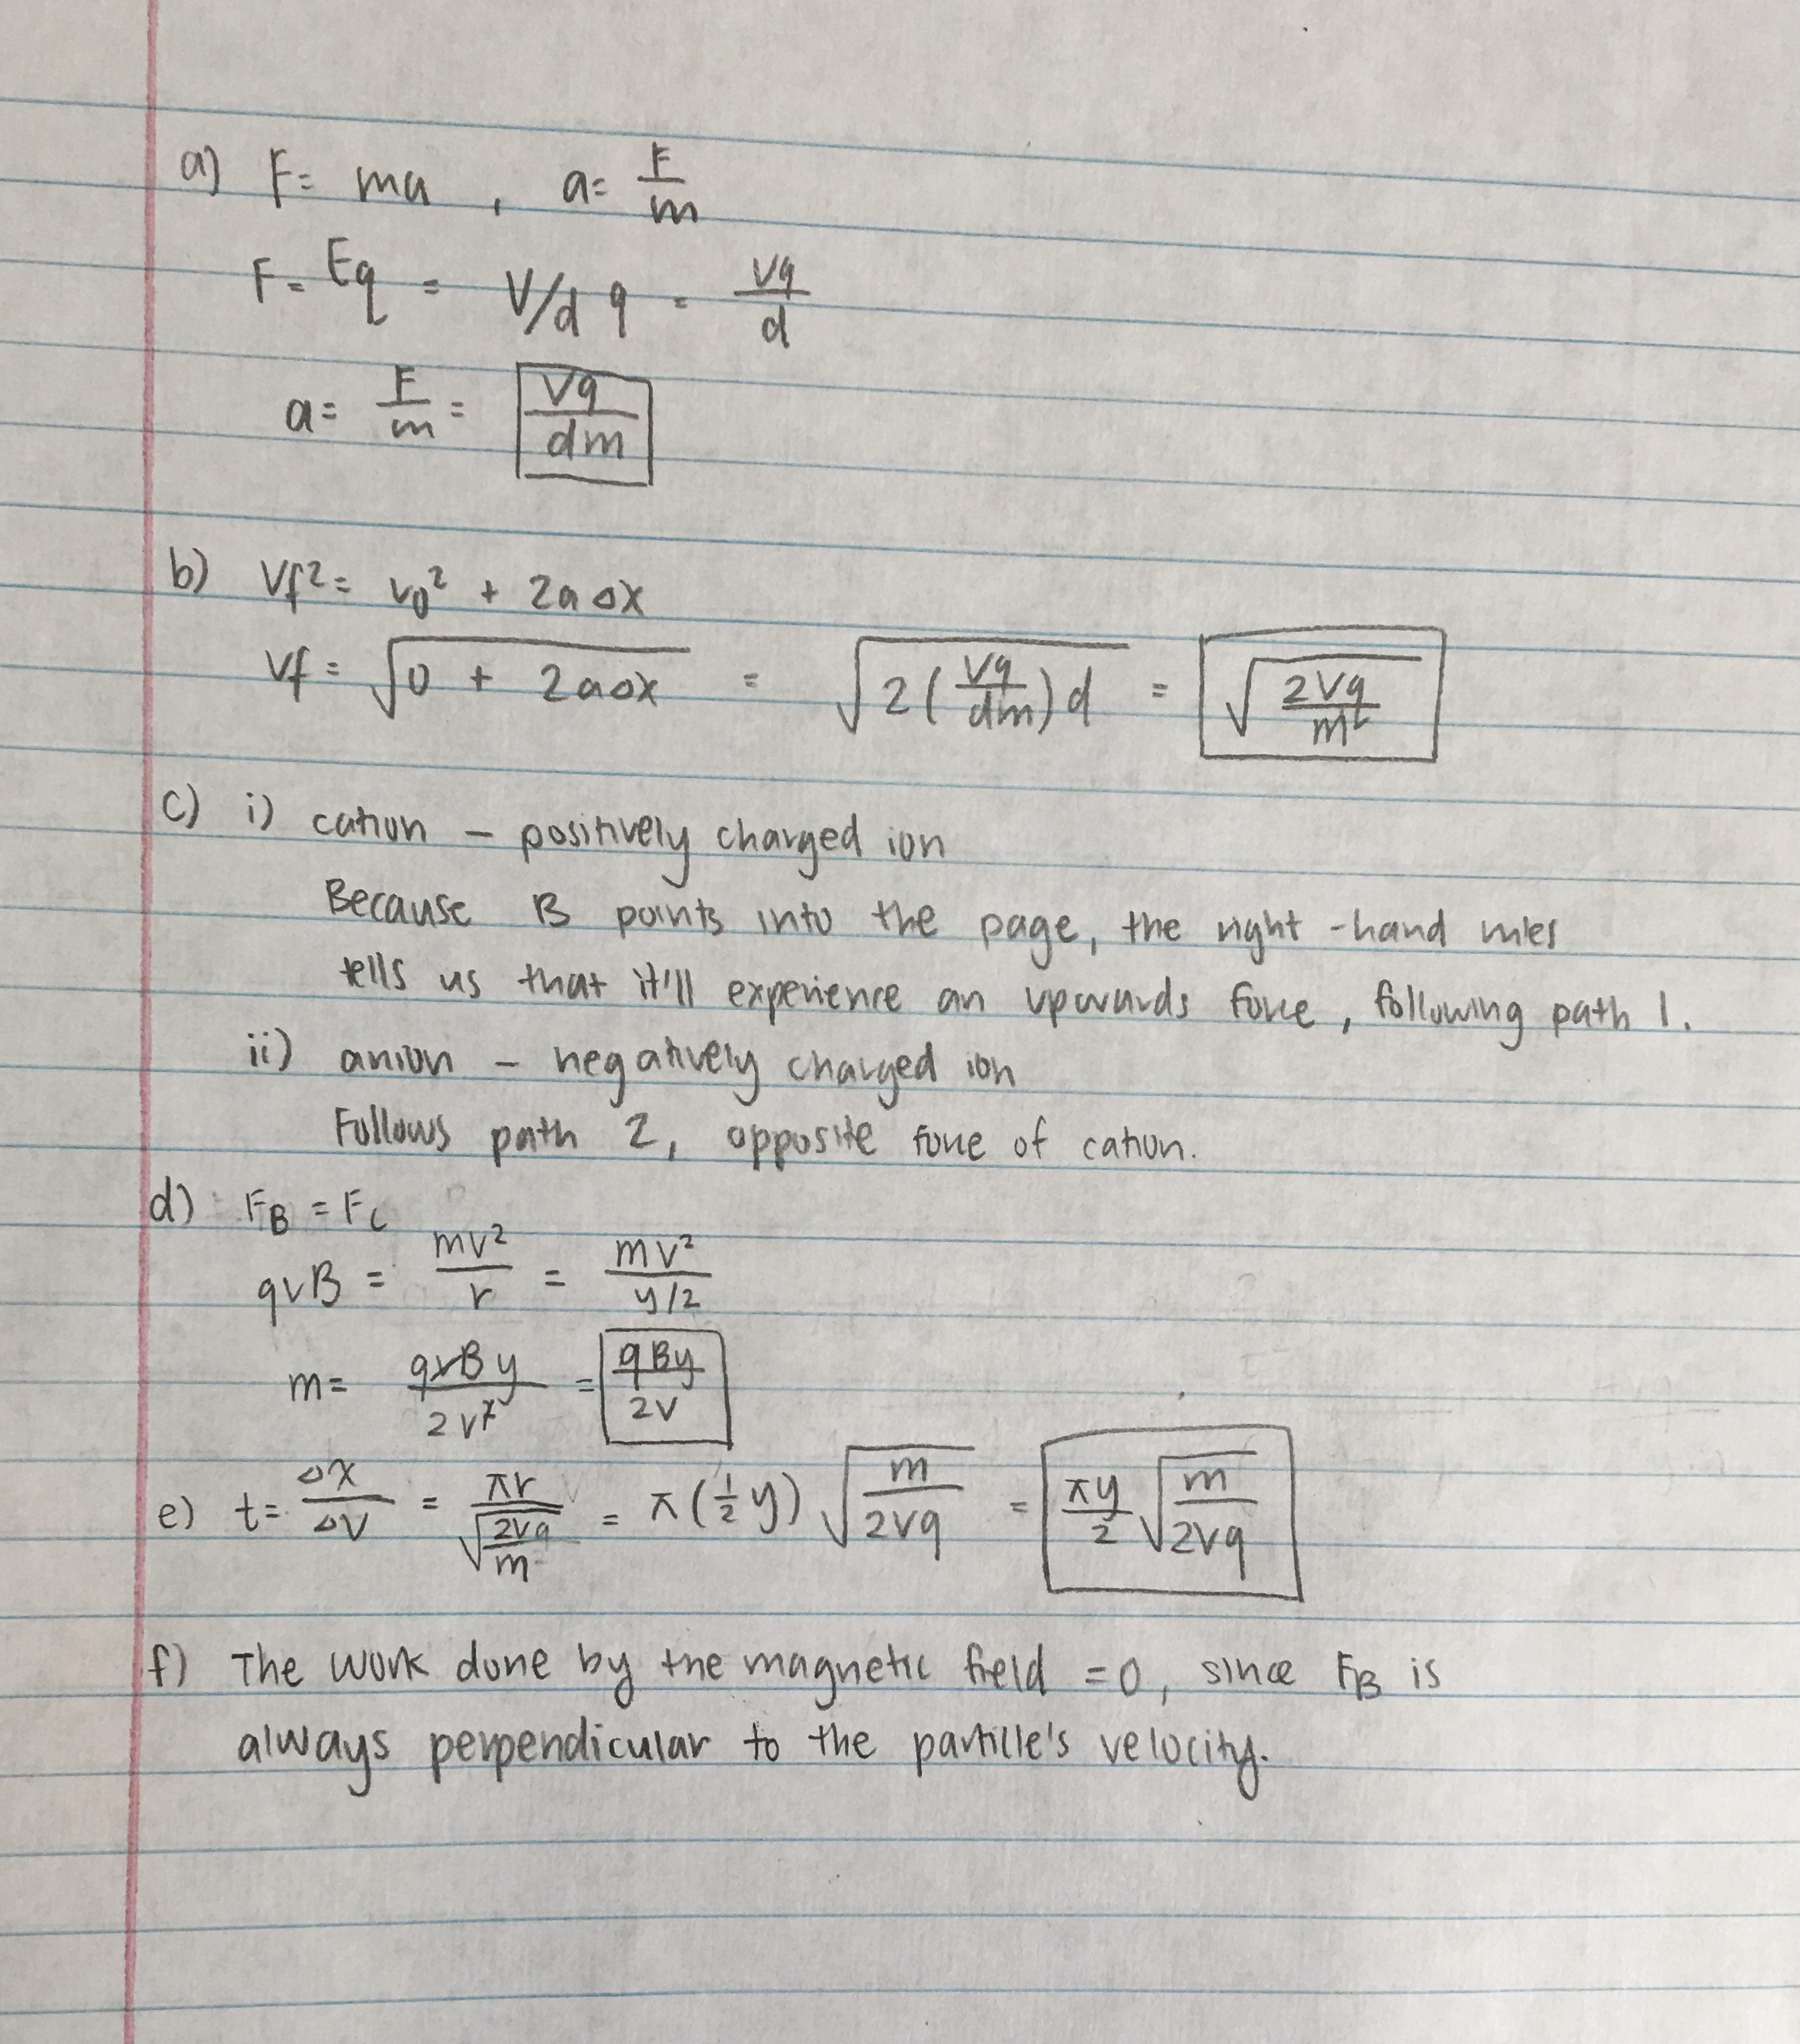 a) F = ma , a = F/m
F = Eq = V/d q = Vq/d
a = F/m = Vq/dm
b) Vf² = v₀² + 2aΔx
Vf = √(0 + 2aΔx) = √(2(Vq/dm)d) = √(2Vq/m)
c) i) cation – positively charged ion
Because B points into the page, the right-hand rules
tells us that it'll experience an upwards force, following path 1.
ii) anion – negatively charged ion
Follows path 2, opposite force of cation.
d) F_B = F_C
qvB = mv²/r = mv²/(y/2)
m = qvBy/2v² = qBy/2v
e) t = Δx/Δv = πr/√(2Vq/m) = π(½y)√(m/2Vq) = πy/2 √(m/2Vq)
f) The work done by the magnetic field = 0, since F_B is
always perpendicular to the particle's velocity.